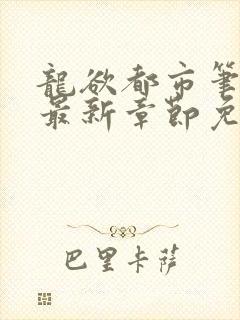 龍欲都市筆
最新章節免
巴里卡薩